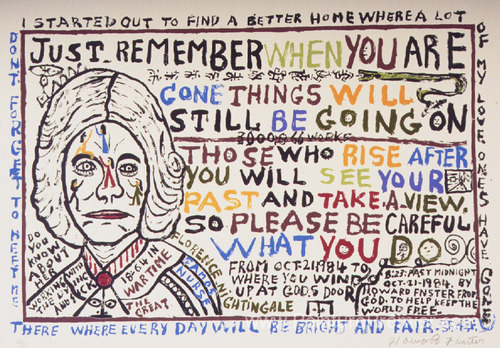 I STARTED OUT TO FIND A BETTER HOME WHERE A LOT
OF MY LOVE ONES HAVE GONE
DONT FORGET TO MEET ME
THERE WHERE EVERY DAY WILL BE BRIGHT AND FAIR.
JUST REMEMBER WHEN YOU ARE
GONE THINGS WILL
STILL BE GOING ON
3000.866 WORKS
THOSE WHO RISE AFTER
YOU WILL SEE YOUR
PAST AND TAKE A VIEW.
SO PLEASE BE CAREFUL
WHAT YOU DO
FROM OCT.21.1984 TO
WHERE YOU WIND
UP AT GOD,S DOOR
8:23. PAST MIDNIGHT
OCT-21-1984. BY
HOWARD FNSTER FROM
GOD. TO HELP KEEP THE
WORLD FREE-
DO
YOU
KNOW
ABOUT
HER
WORKING AMID
THE
AND SICK
WAR TIME
THE GREAT.
FLORENCE NIGHTINGALE
NURSE